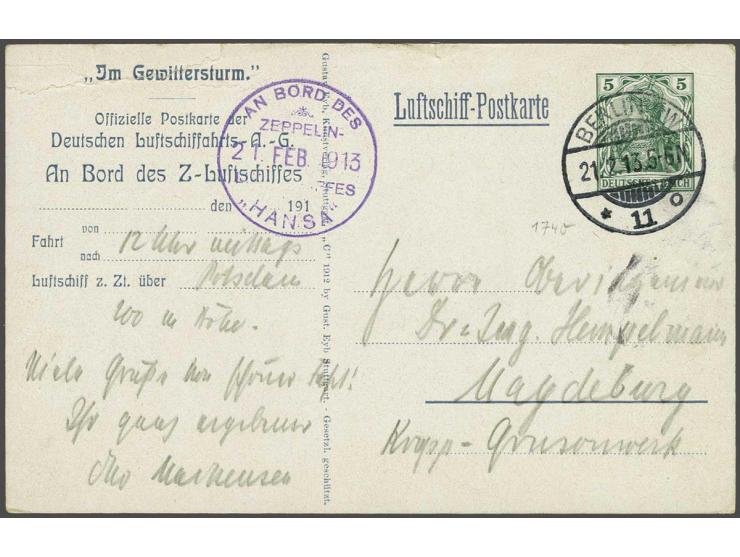 „Im Gewittersturm."
Offizielle Postkarte der
Deutschen Luftschiffahrts-A.-G.
An Bord des Z-Luftschiffes
den 191
Fahrt von nach 12 Uhr mittags
Luftschiff z. Zt. über Potsdam
200 m Höhe.
Viele Grüße von schöner Fahrt!
Ihr ganz ergebener
Otto Mackensen
AN BORD DES
ZEPPELIN-
21. FEB. 1913
FES
„HANSA"
Gustav Eyb, Kunstverlag, Stuttgart. „C" 1912 by Gust. Eyb Stuttgart. - Gesetzl. geschützt.
Luftschiff-Postkarte
5 5
DEUTSCHES REICH
BERLIN NW
21.2.13.
* 11 o
1740
Herrn Oberingenieur
Dr=Ing. Hempelmann
Magdeburg
Krupp-Grusonwerk